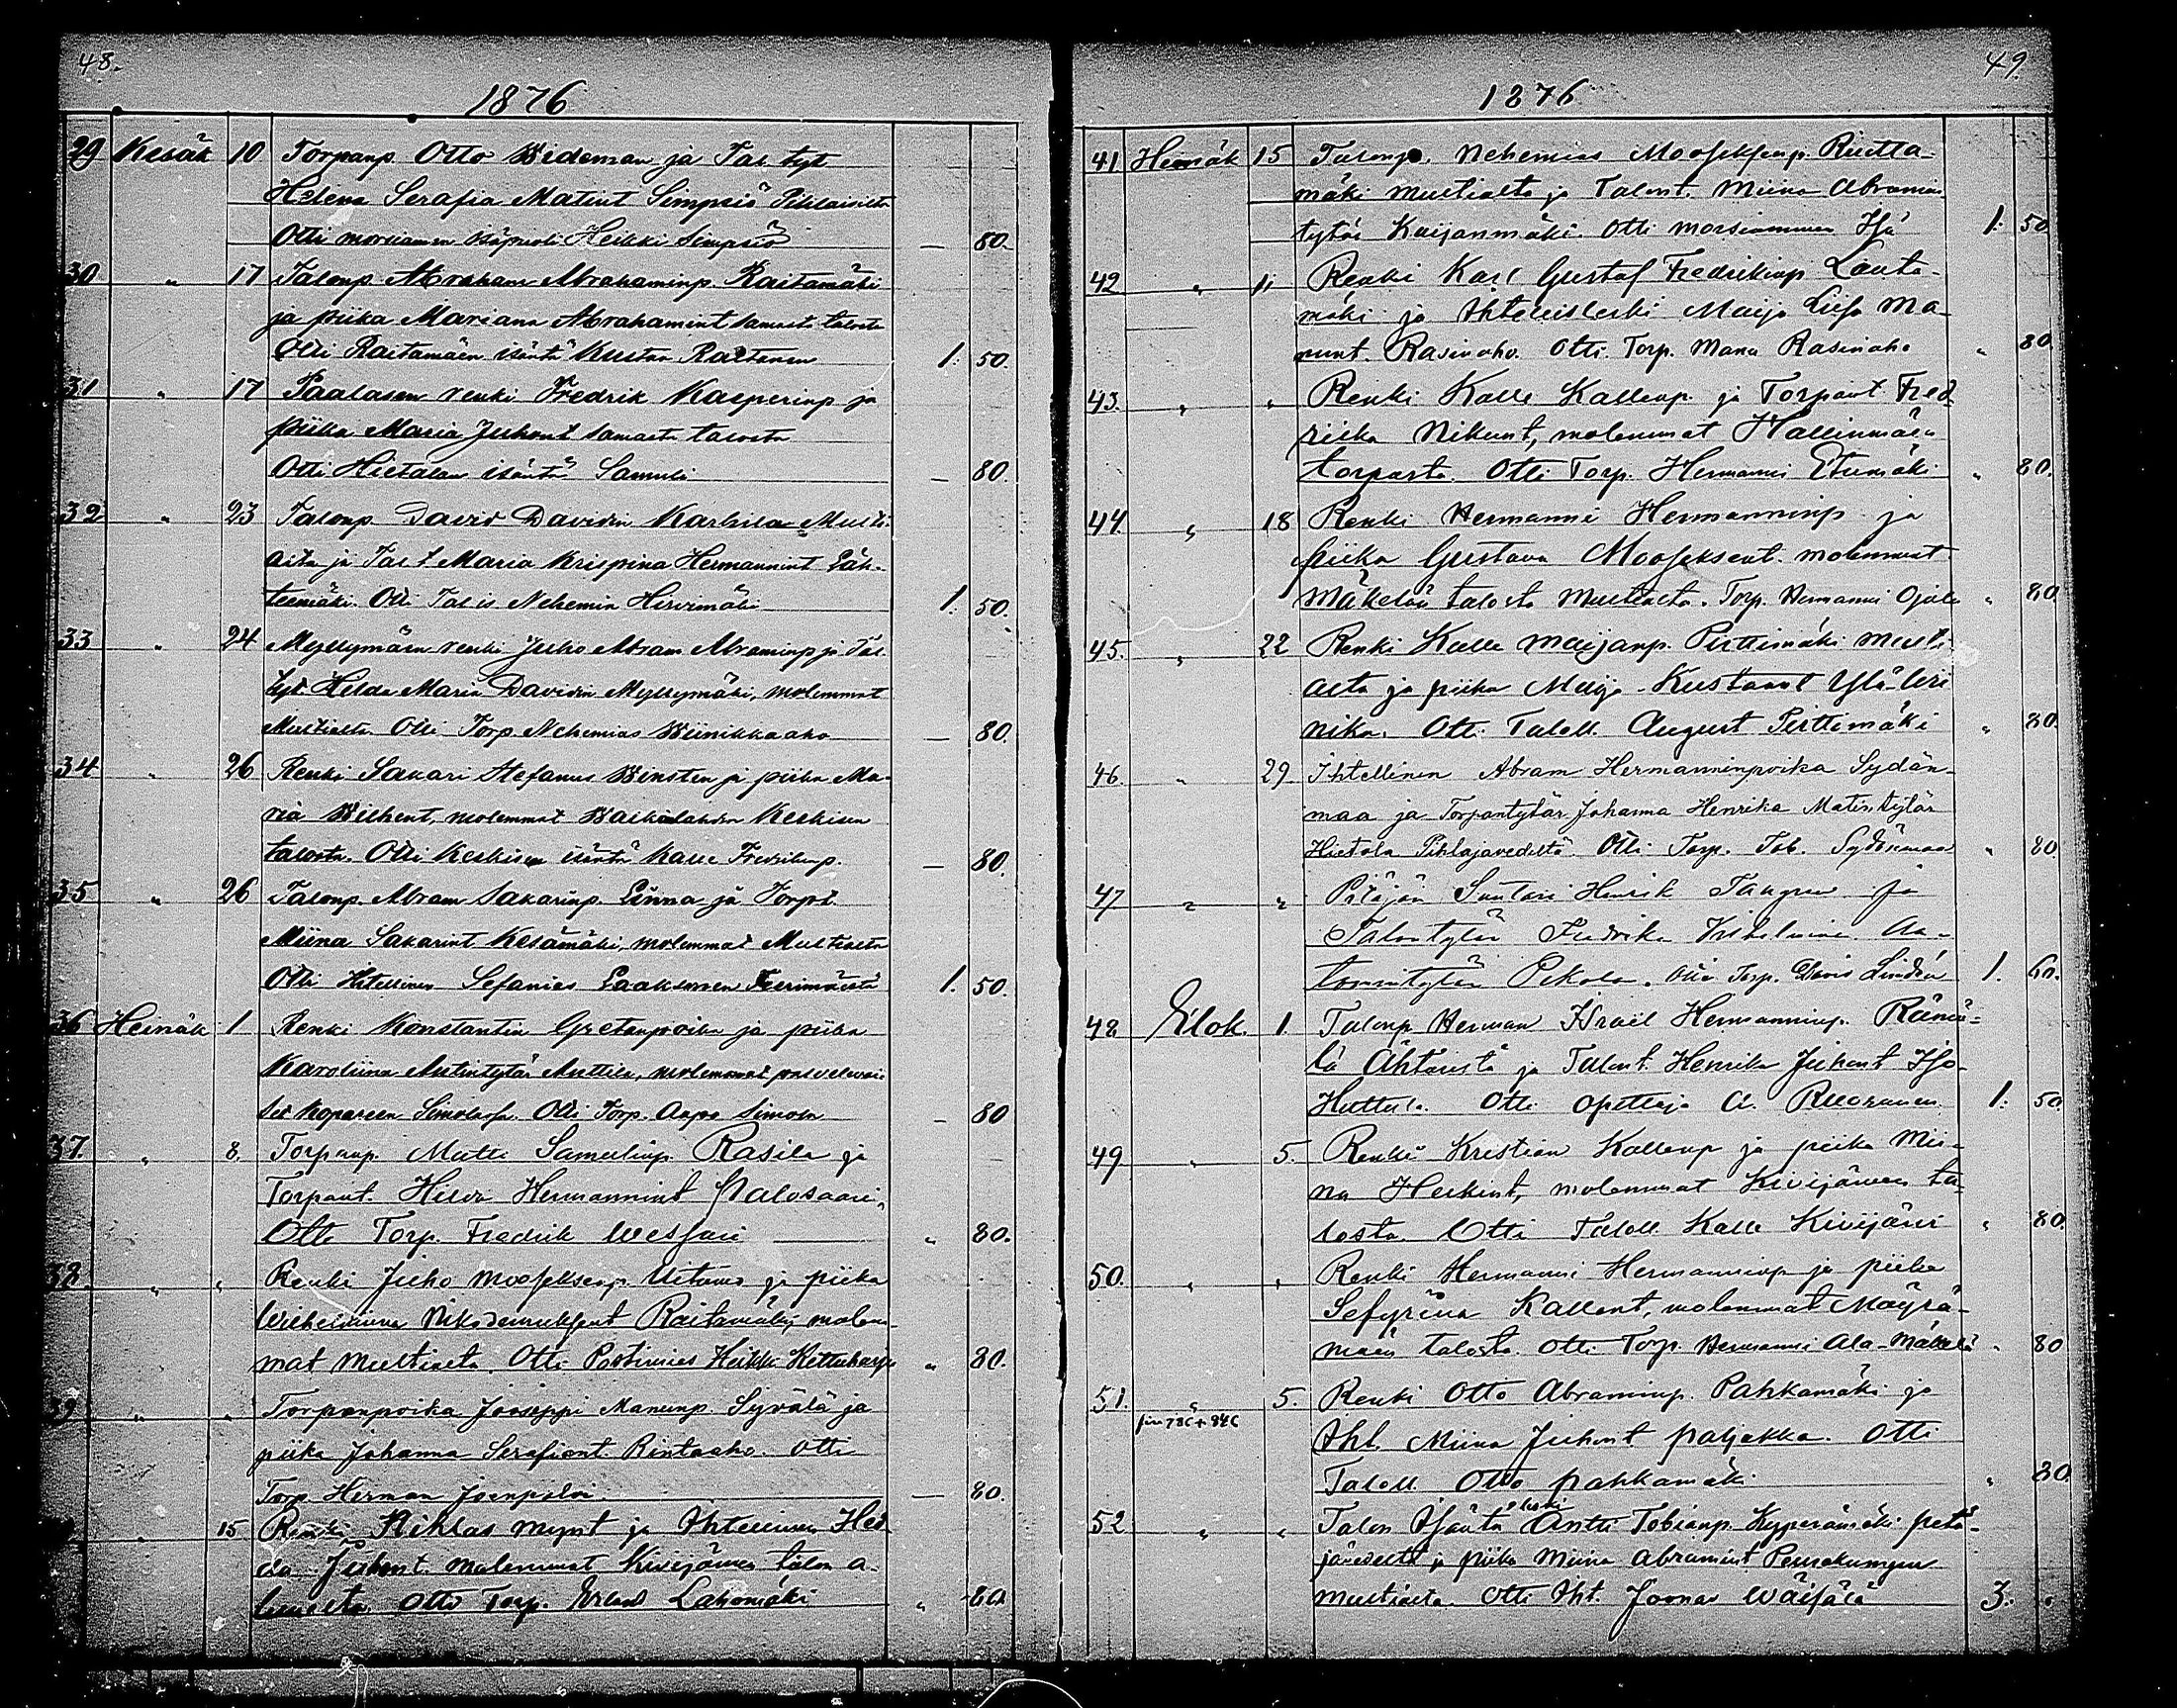 48.
1876
29 Kesäk 10 Torpanp. Otto Wideman ja Tal. tyt
Helena Serafia Matint Simpsiö Pihlaisilta
Otti morsiamen isäpuoli Heikki Simpsiö — 80.
30 " 17 Talonp. Abraham Abrahaminp. Raitamäki
ja piika Mariana Abrahamint samasta talosta
Otti Raitamäen isäntä Kustaa Raitanen 1. 50.
31 " 17 Paalasen renki Fredrik Kasperinp ja
piika Maria Juhont samasta talosta
Otti Hietalan isäntä Samuli — 80.
32 " 23 Talonp. David Davidin Karhila Multi-
alta ja Tal t Maria Krispina Hermannint Läh-
teemäki. Otti Tal is Nehemia Hirvimäki 1. 50.
33 " 24 Myllymäen renki Juho Abram Abraminp ja Tal.
tyt. Helda Maria Davidin Myllymäki, molemmat
Multialta. Otti Torp Nehemias Wiinikkaaho — 80.
34 " 26 Renki Sakari Stefanus Winsten ja piika Ma-
ria Wilhent, molemmat Keskisen
talosta. Otti Keskisen isäntä Kalle Fredrikinp. — 80.
35 " 26 Talonp. Abram Sakarinp. Linna ja Torpt
Miina Sakarint Kesämäki, molemmat Multialta
Otti Ihtellinen Sefanias Laaksonen 1. 50.
36 Heinäk 1 Renki Konstantin Gretanpoika ja piika
Karoliina Antintytär Anttila, molemmat palvelevai
set Simolassa. Otti Torp. Aapo Simola — 80
37. " 8. Torpanp. Matti Samulinp. Rasila ja
Torpant. Hilda Hermannint Palosaari,
Otti Torp. Fredrik Wessari " 80.
38. " " Renki Juho Mooseksenp. Uitamo ja piika
Wilhelmiina Nikodemuksent Raitamäki, molem-
mat Multialta. Otti Postimies Heikki Kettuharju " 80.
39 " " Torpanpoika Jooseppi Manunp. Syvälä ja
piika Johanna Serafiant. Rintaaho. Otti
Torp. Herman Joenpolvi. — 80.
" 15 Renki Niklas Mynt ja Ihtellinen Hed
da Juhont. molemmat Kivijärven talon a-
lueelta. Otti Torp. Erland Lahomäki " 80.
49.
1876
41 Heinäk 15 Talonp. Nehemias Mooseksenp. Ruitta-
mäki Multialta ja Talont. Miina Abramin
tytär Kaijanmäki. Otti morsiammen Isä 1. 50
42. " 11 Renki Karl Gustaf Fredrikinp Lauta-
mäki ja Ihtellisleski Maija Liisa Ma-
nunt. Rasinaho. Otti. Torp. Manu Rasinaho " 80.
43. " " Renki Kalle Kallenp. ja Torpant Fred-
riika Nikunt, molemmat Hallinmäen
torpasta. Otti Torp. Hermanni Etumäki " 80.
44. " 18 Renki Hermanni Hermanninp ja
piika Gustava Mooseksent. molemmat
Mäkelän talosta Multialta. Torp. Hermanni Ojala " 80
45. " 22 Renki Kalle Maijanp. Pirttimäki Multi-
alta ja piika Maija Kustaant Ylä-Wri
nika. Otti Taloll. August Pirttimäki " 80.
46. " 29 Ihtellinen Abram Hermanninpoika Sydän-
maa ja Torpantytär Johanna Henrika Matintytär
Hietala Pihlajavedeltä. Otti Torp. Tob. Sydänmaa " 80.
47 " " Pitäjän Suutari Henrik Tangren ja
Talontytär Fredrika Wilhelmina An-
tonintytär Pekola. Otti Torp. David Lindén 1. 60.
48 Elok. 1. Talonp Herman Israël Hermanninp. Rämä-
lä Ähtäristä ja Talont. Henrika Juhont Iso-
Huttula. Otti opettaja A. Ruoranen 1. 50.
49 " 5. Renki Kristian Kallenp ja piika Mii-
na Heikint, molemmat Kivijärven ta-
losta. Otti Taloll. Kalle Kivijärvi " 80.
50. " " Renki Hermanni Hermanninp ja piika
Sefyriina Kallent, molemmat Mäyrä-
mäen talosta. Otti Torp. Hermanni Ala-Mäkelä " 80
51. " 5. Renki Otto Abraminp. Pahkamäki ja
fin 78C + 84C
Iht. Miina Juhont paljakka. Otti
Taloll. Otto pahkamäki " 80.
52 " " Talon Isäntä leski Antti Tobianp. Kyperämäki petä-
järvedeltä ja piika Miina Abramint
Multialta. Otti Iht. Joonas Wäisälä 3. "